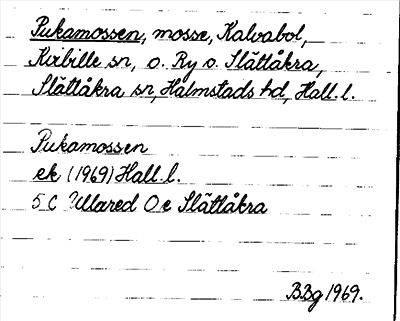 Pukamossen, mosse, Kalvabol,
Kvibille sn, o. Ry o. Slättåkra,
Slättåkra sn, Halmstads hd, Hall. l.
Pukamossen
ek (1969) Hall. l.
5 C Ullared O e Slättåkra
BBg 1969.